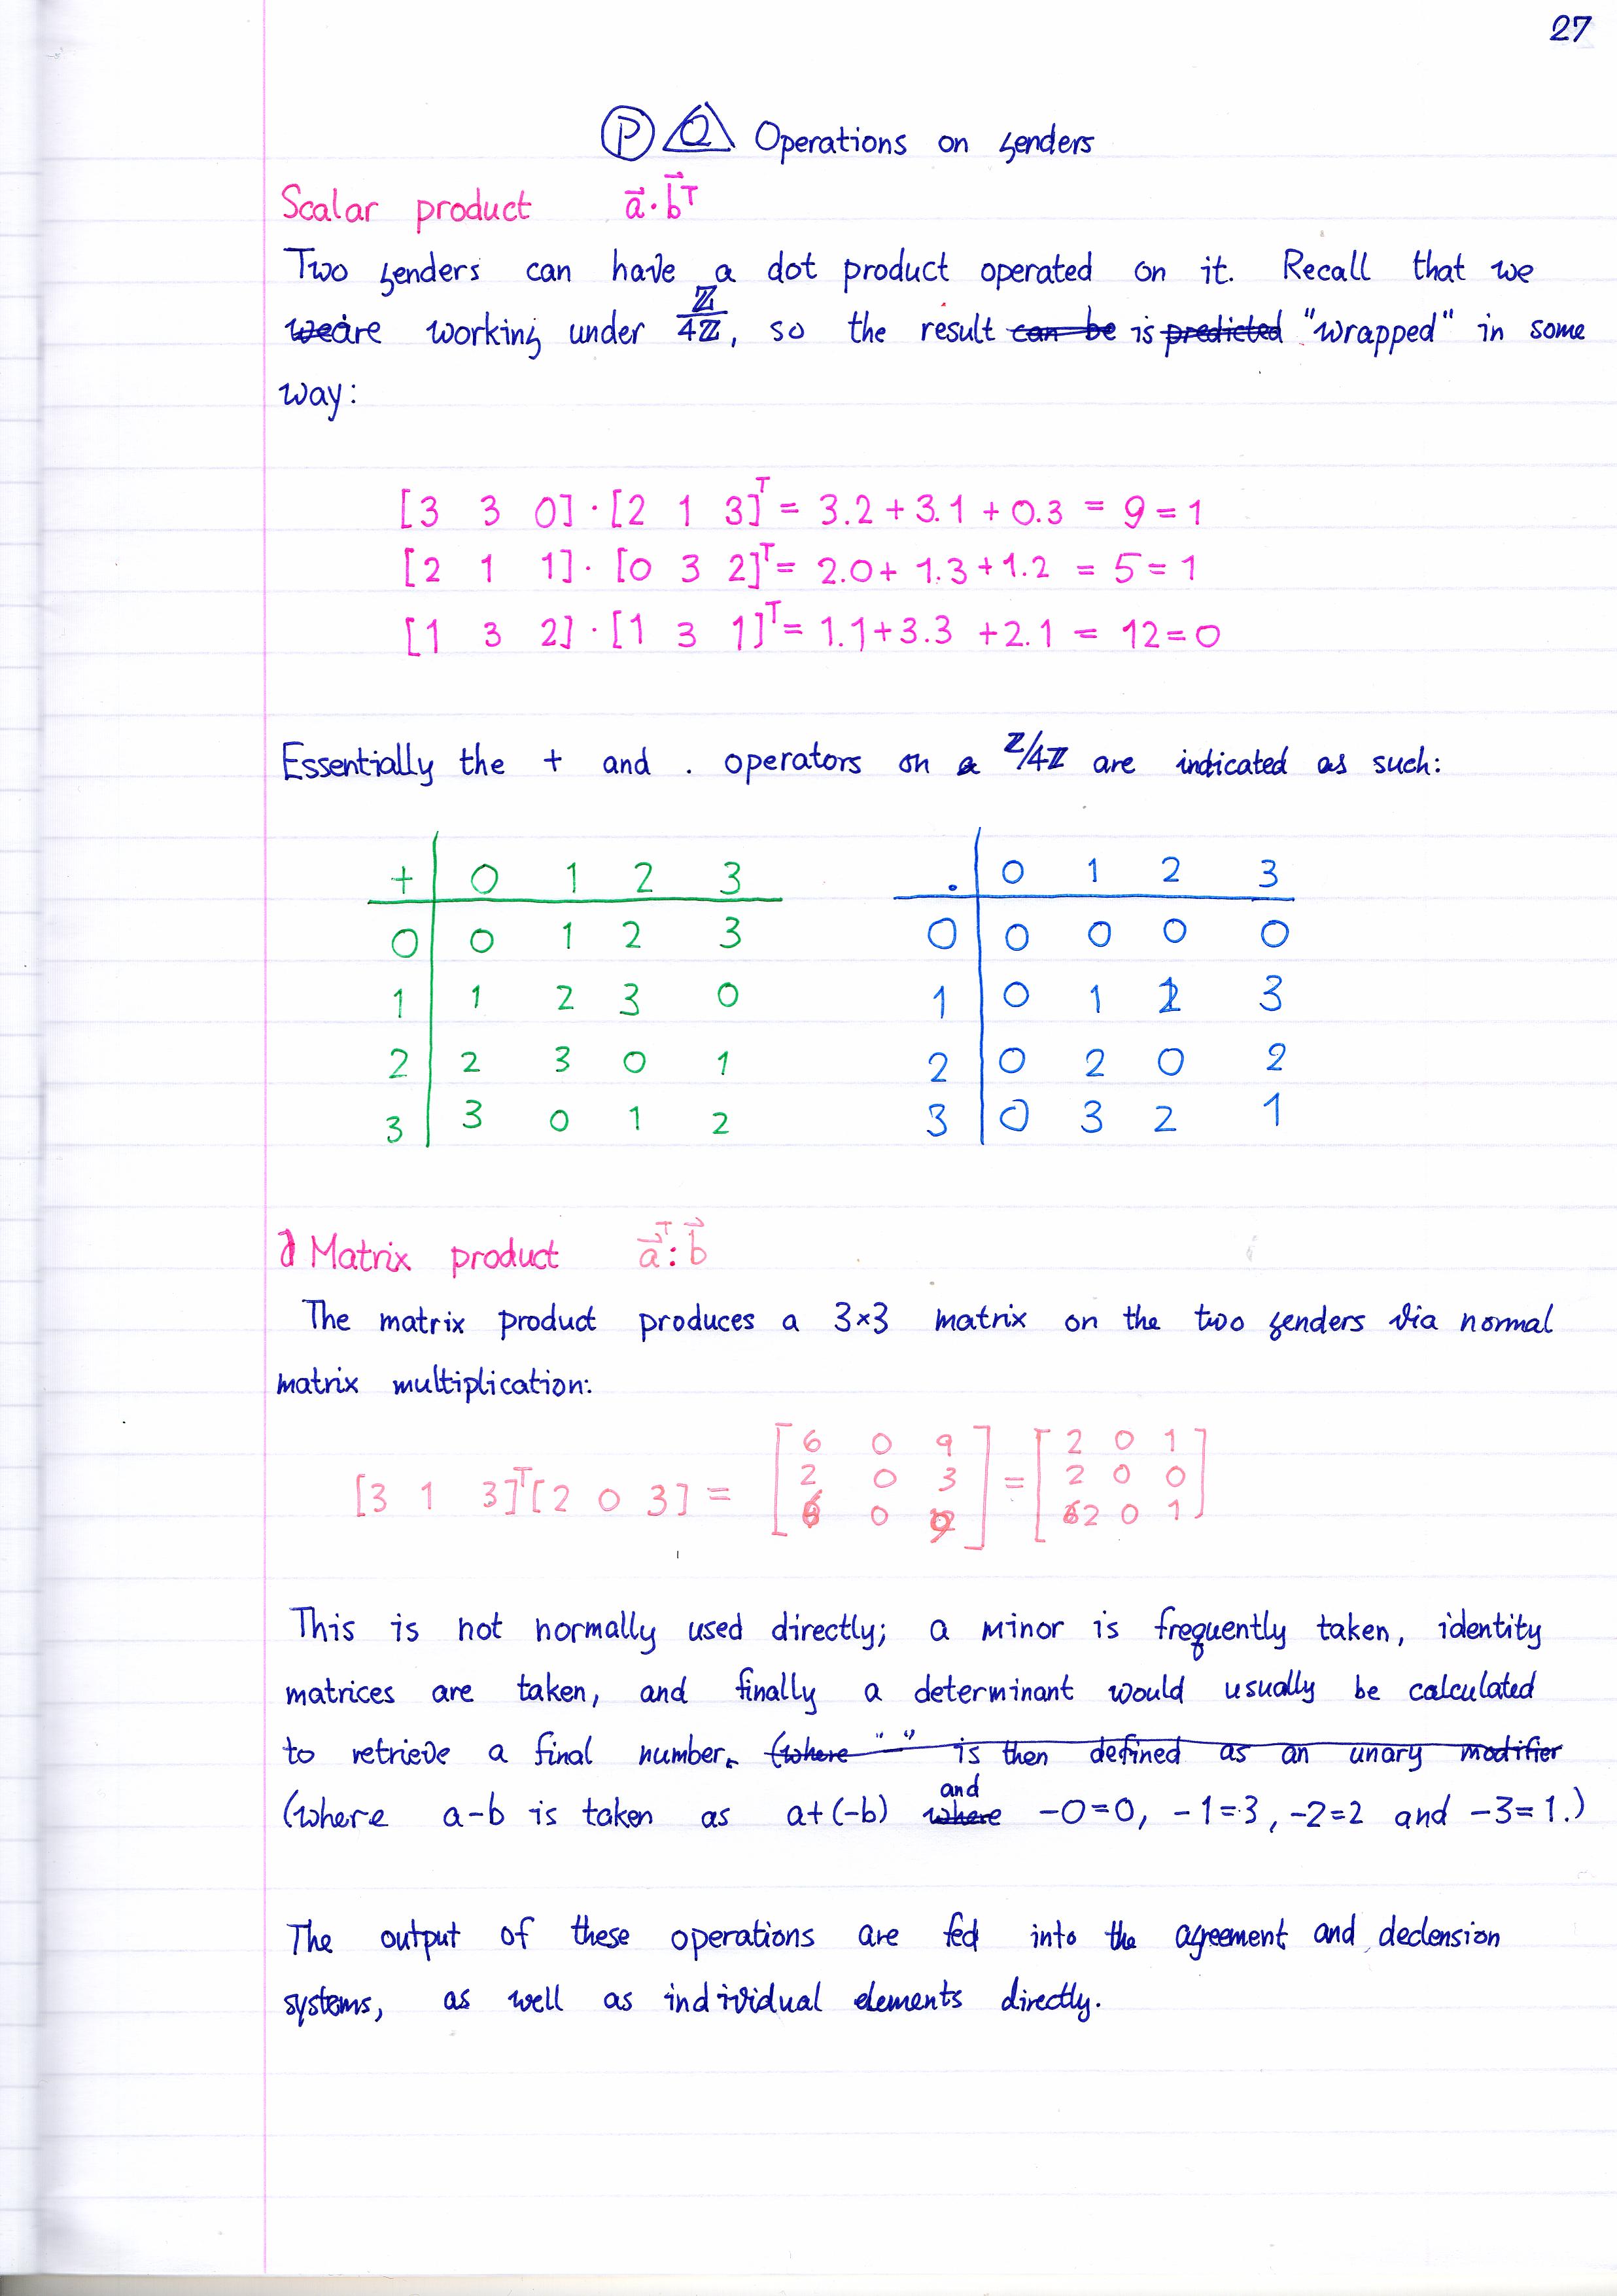 27
P Q Operations on genders
Scalar product a⃗·b⃗ᵀ
Two genders can have a dot product operated on it. Recall that we
we are working under ℤ/4ℤ, so the result can be is predicted "wrapped" in some
way:
[3 3 0]·[2 1 3]ᵀ = 3.2+3.1+0.3 = 9=1
[2 1 1]·[0 3 2]ᵀ= 2.0+ 1.3+1.2 = 5=1
[1 3 2]·[1 3 1]ᵀ= 1.1+3.3 +2.1 = 12=0
Essentially the + and . operators on a ℤ/4ℤ are indicated as such:
+ 0 1 2 3 . 0 1 2 3
0 0 1 2 3 0 0 0 0 0
1 1 2 3 0 1 0 1 2 3
2 2 3 0 1 2 0 2 0 2
3 3 0 1 2 3 0 3 2 1
Matrix product a⃗ᵀ:b⃗
The matrix product produces a 3×3 matrix on the two genders via normal
matrix multiplication:
6 0 9 2 0 1
[3 1 3]ᵀ[2 0 3] = 2 0 3 = 2 0 0
6 0 9 2 0 1
This is not normally used directly; a minor is frequently taken, identity
matrices are taken, and finally a determinant would usually be calculated
to retrieve a final number. (where " " is then defined as an unary modifier
(where a-b is taken as a+(-b) where and -0=0, -1=3, -2=2 and -3=1.)
The output of these operations are fed into the agreement and declension
systems, as well as individual elements directly.